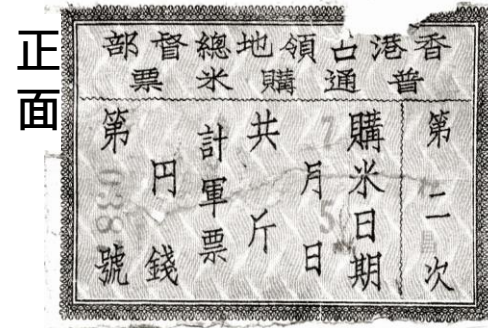 正面
香港占領地總督部
普通購米票
第二次
購米日期
7月5日
共 斤
計軍票
円 錢
第 038 號